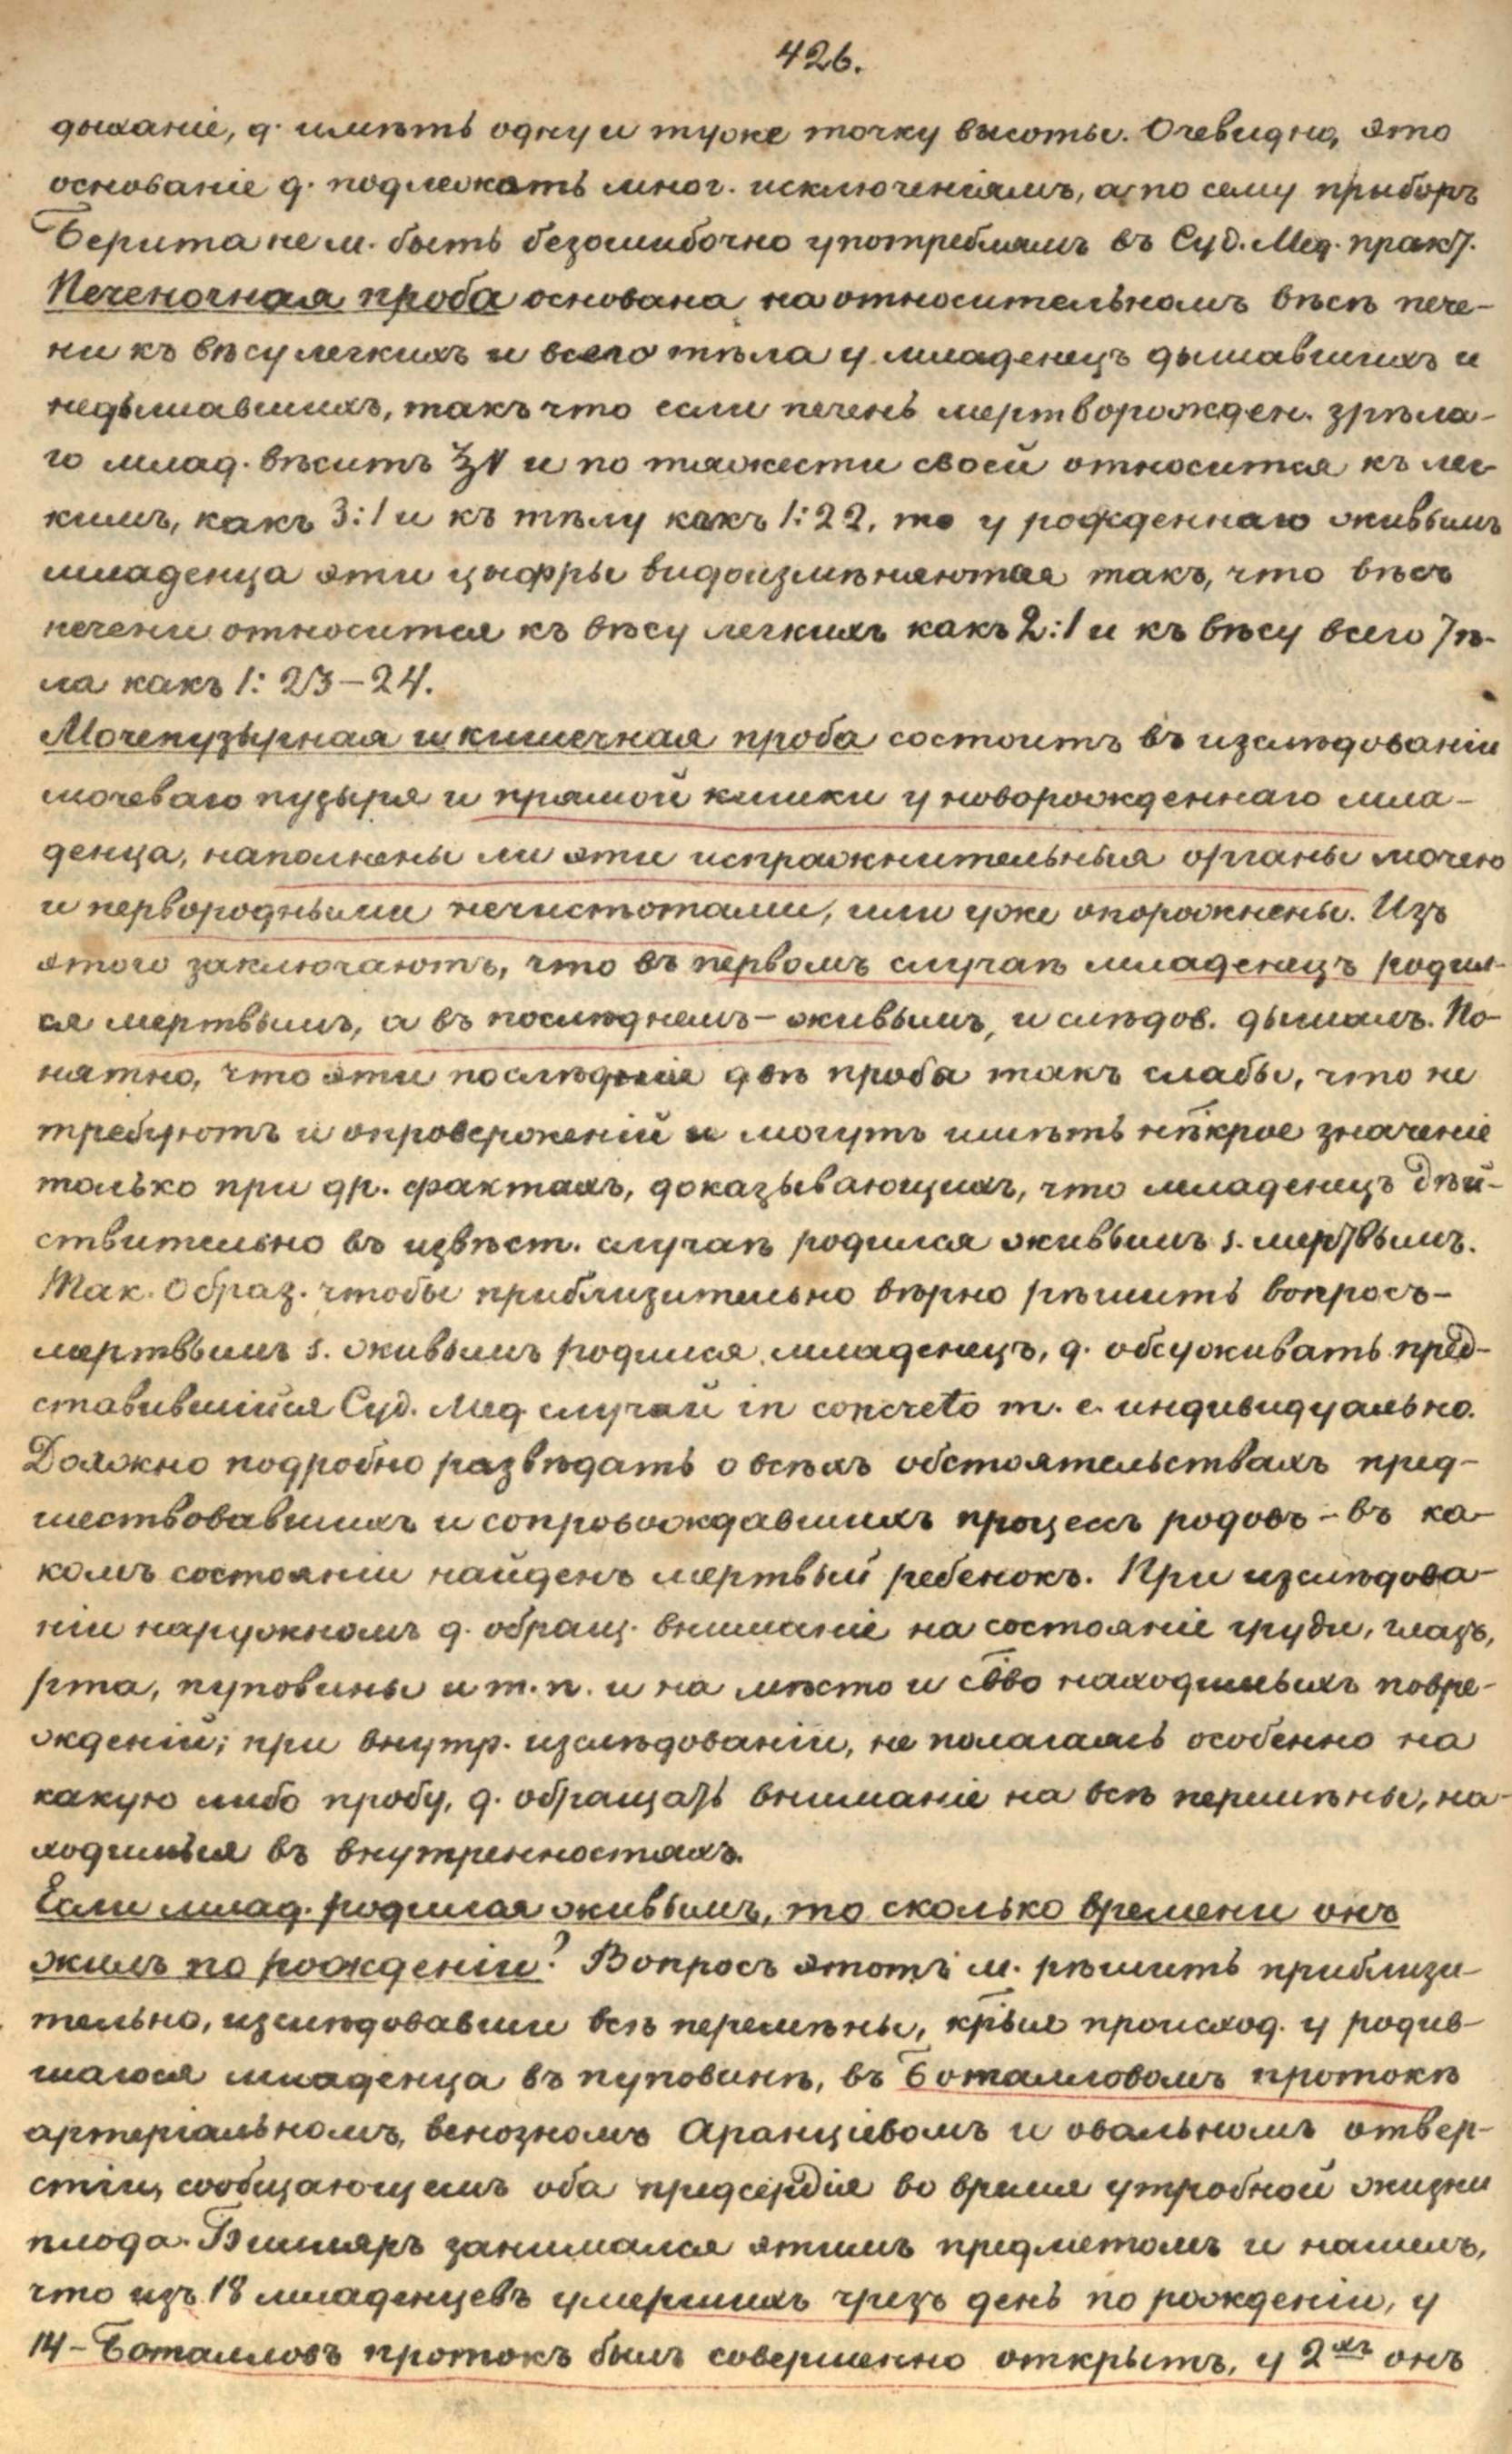 426.
дыханіе, д. имѣть одну и туже точку высоты. Очевидно, это
основаніе д. подлежать мног. исключеніямъ, а по сему приборъ
Бернта не м. быть безошибочно употребляемъ въ Суд. Мед. практ.
Печеночная проба основана на относительномъ вѣсѣ пече-
ни къ вѣсу легкихъ и всего тѣла у младенецъ дышавшихъ и
недышавшихъ, такъ что если печень мертворожден. зрѣла-
го млад. вѣситъ ℥V и по тяжести своей относится къ лег-
кимъ, какъ 3:1 и къ тѣлу какъ 1:22, то у рожденнаго живымъ
младенца эти цыфры видоизмѣняются такъ, что вѣсъ
печени относится къ вѣсу легкихъ какъ 2:1 и къ вѣсу всего тѣ-
ла какъ 1: 23-24.
Мочепузырная и кишечная проба состоитъ въ изслѣдованіи
мочеваго пузыря и прямой кишки у новорожденнаго мла-
денца, наполнены ли эти испражнительныя органы мочею
и первородными нечистотами, или уже опорожнены. Изъ
этого заключаютъ, что въ первомъ случаѣ младенецъ родил-
ся мертвымъ, а въ послѣднемъ - живымъ, и слѣдов. дышалъ. По-
нятно, что эти послѣднія двѣ проба такъ слабы, что не
требуютъ и опроверженій и могутъ имѣть нѣкрое значеніе
только при др. фактахъ, доказывающихъ, что младенецъ дѣй-
ствительно въ извѣст. случаѣ родился живымъ s. мертвымъ.
Так. Образ. чтобы приблизительно вѣрно рѣшить вопросъ-
мертвымъ s. живымъ родился младенецъ, д. обсуживать пред-
ставившійся Суд. Мед. случай in concreto т. е. индивидуально.
Должно подробно развѣдать о всѣхъ обстоятельствахъ пред-
шествовавшихъ и сопровождавшихъ процессъ родовъ - въ ка-
комъ состояніи найденъ мертвый ребенокъ. При изслѣдова-
ніи наружномъ д. обращ. вниманіе на состояніе груди, глазъ,
рта, пуповины и т. п. и на мѣсто и свво находимыхъ повре-
жденій; при внутр. изслѣдованіи, не полагаясь особенно на
какую либо пробу, д. обращать вниманіе на всѣ перемѣны, на-
ходимыя въ внутренностяхъ.
Если млад. родился живымъ, то сколько времени онъ
жилъ по рожденіи? Вопросъ этотъ м. рѣшить приблизи-
тельно, изслѣдовавши всѣ перемѣны, крыя происход. у родив-
шагося младенца въ пуповинѣ, въ Боталловомъ протокѣ
артеріальномъ, венозномъ Аранціевомъ и овальномъ отвер-
стіи, сообщающемъ оба предсердія во время утробной жизни
плода. Биллляръ занимался этимъ предметомъ и нашелъ,
что изъ 18 младенцевъ умершихъ чрезъ день по рожденіи, у
14 - Боталловъ протокъ былъ совершенно открытъ, у 2хъ онъ